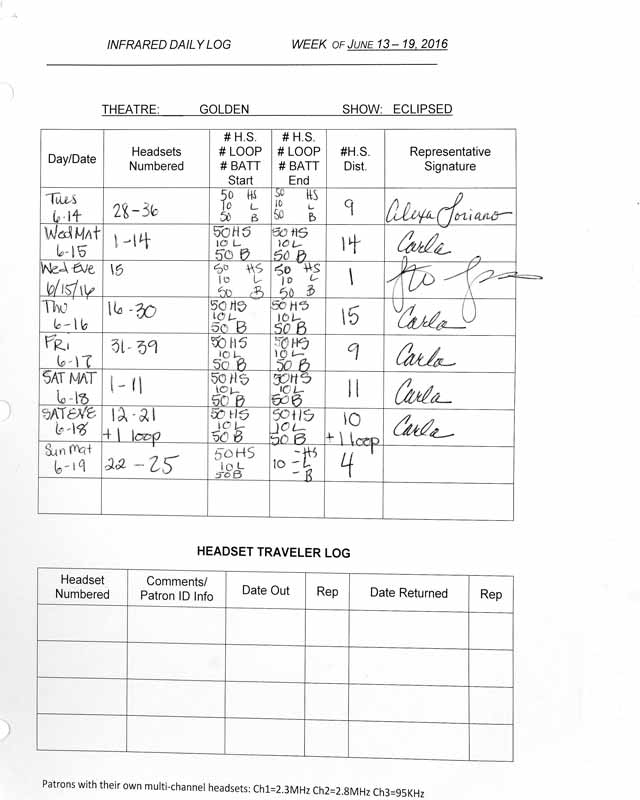 INFRARED DAILY LOG WEEK OF JUNE 13 – 19, 2016
THEATRE: GOLDEN SHOW: ECLIPSED
Day/Date
Headsets
Numbered
# H.S.
# LOOP
# BATT
Start
# H.S.
# LOOP
# BATT
End
#H.S.
Dist.
Representative
Signature
Tues
6-14
28-36
50 HS
10 L
50 B
50 HS
10 L
50 B
9
Alexa Soriano
Wed MAT
6-15
1-14
50HS
10L
50 B
50HS
10L
50 B
14
Carla
Wed Eve
6/15/16
15
50 HS
10 L
50 B
50 HS
10 L
50 B
1
Thu
6-16
16-30
50HS
10L
50 B
50HS
10L
50 B
15
Carla
FRi
6-17
31-39
50HS
10L
50 B
50HS
10L
50 B
9
Carla
SAT MAT
6-18
1-11
50HS
10L
50 B
50HS
10L
50 B
11
Carla
SAT EVE
6-18
12-21
+1 loop
50HS
10L
50 B
50HS
10L
50 B
10
+1 loop
Carla
Sun Mat
6-19
22-25
50HS
10L
50B
-HS
10 -L
-B
4
HEADSET TRAVELER LOG
Headset
Numbered
Comments/
Patron ID Info
Date Out
Rep
Date Returned
Rep
Patrons with their own multi-channel headsets: Ch1=2.3MHz Ch2=2.8MHz Ch3=95KHz